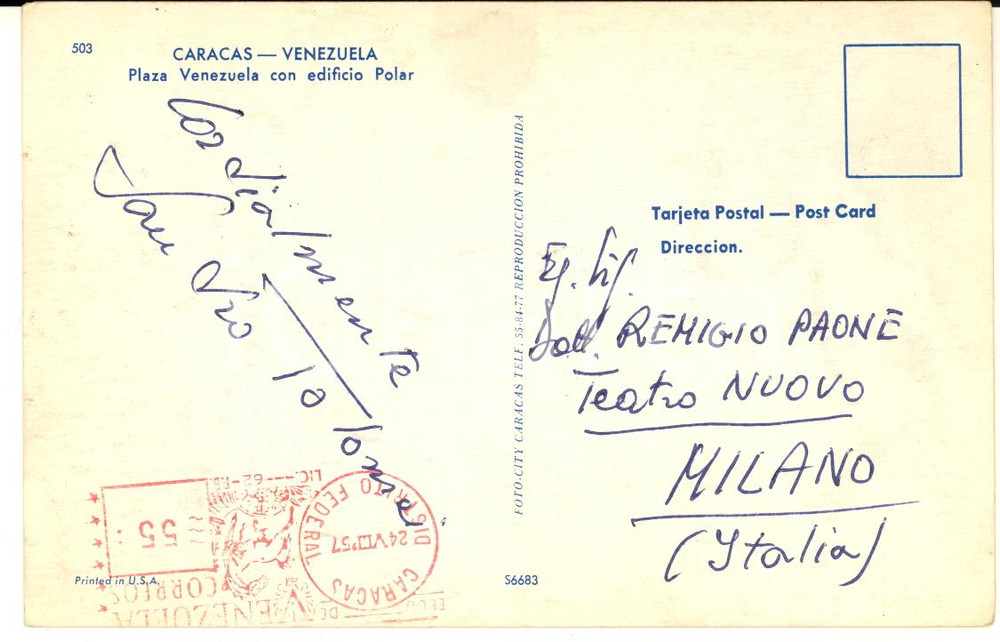 503
CARACAS — VENEZUELA
Plaza Venezuela con edificio Polar
Cordialmente
Sandro
FOTO-CITY CARACAS TELF. 55-84-77 REPRODUCCION PROHIBIDA
Tarjeta Postal — Post Card
Direccion.
Eg. Sig.
Dott. REMIGIO PAONE
Teatro NUOVO
MILANO
(Italia)
LIC.
55
DISTRITO FEDERAL
CARACAS
CORREOS
DE VENEZUELA
Printed in U.S.A.
S6683